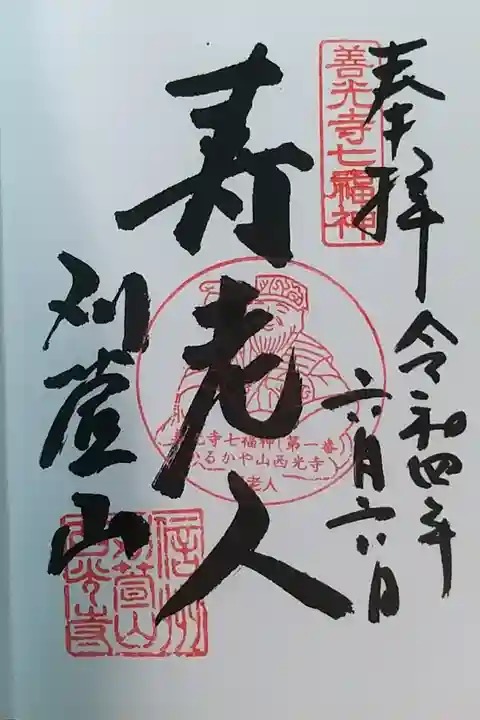 奉拝
善光寺七福神
令和四年
六月六日
寿老人
善光寺七福神(第一番)
かるかや山西光寺
寿老人
刈萱山
信州
刈萱山
西光寺